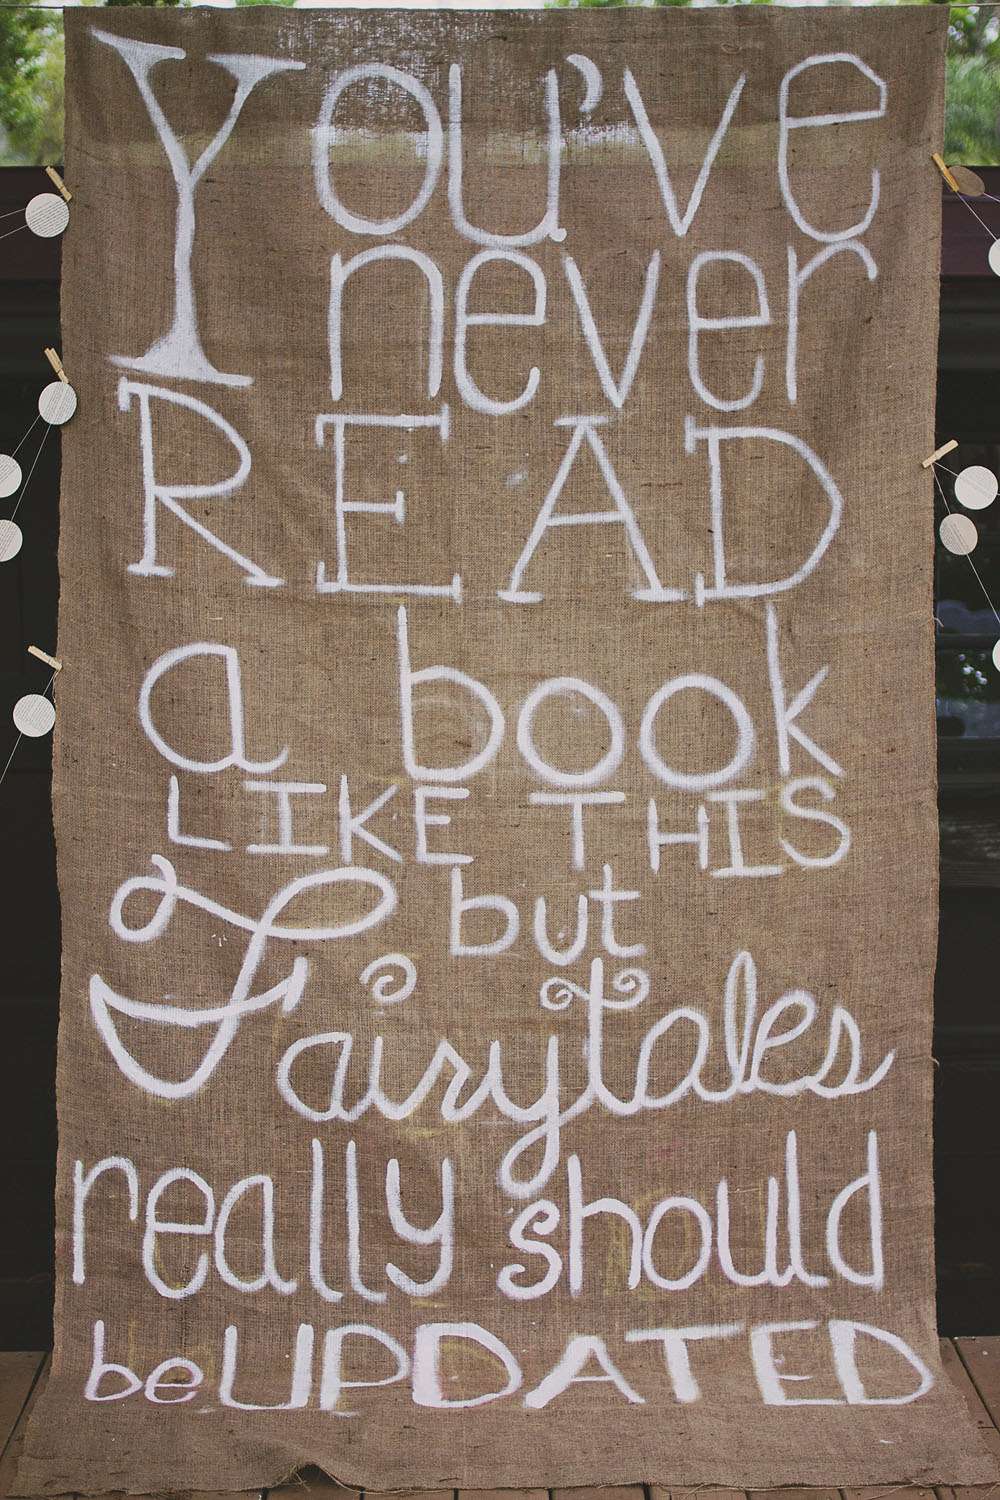 You've
never
READ
a book
LIKE THIS
but
Fairytales
really should
be UPDATED